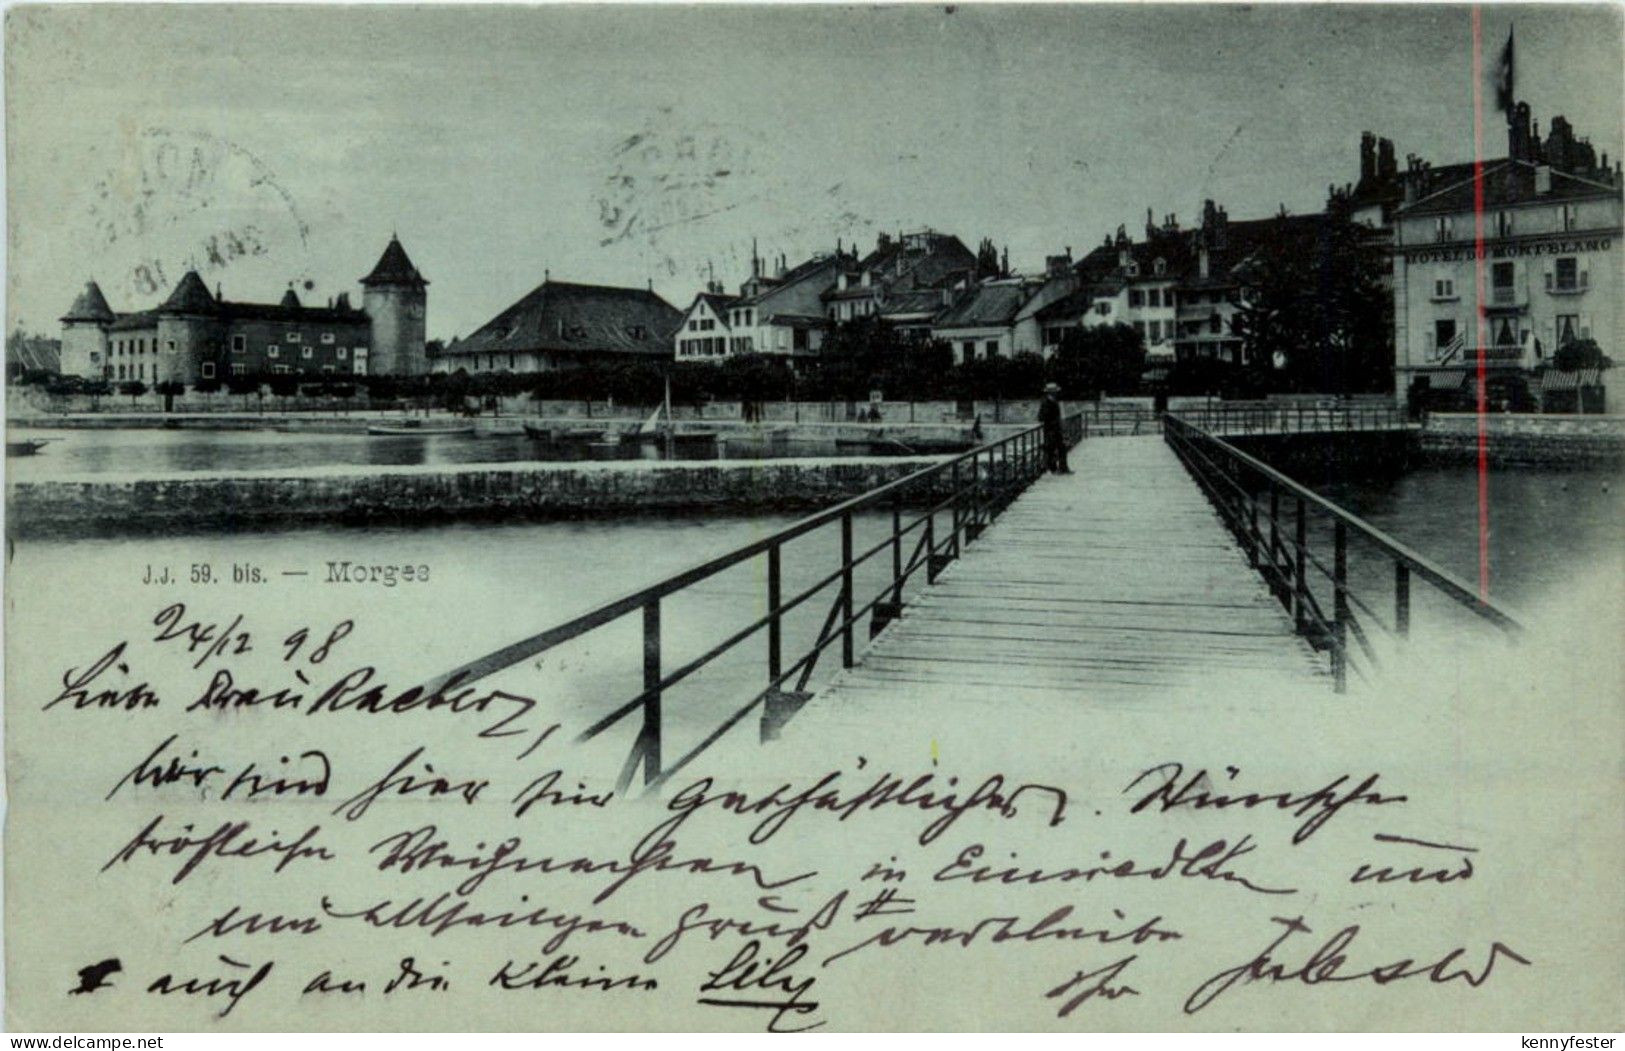 HOTEL DU MONT-BLANC
J.J. 59. bis. — Morges
24/12 98
Liebe Frau Kaelberz,
wir sind hier für Geschäftliches. Wünsche
fröhliche Weihnachten in Einsiedeln und
mit allseitigen Gruß verbleibe
# auch an die kleine Lily
Ihr
delcampe.com kennyfester